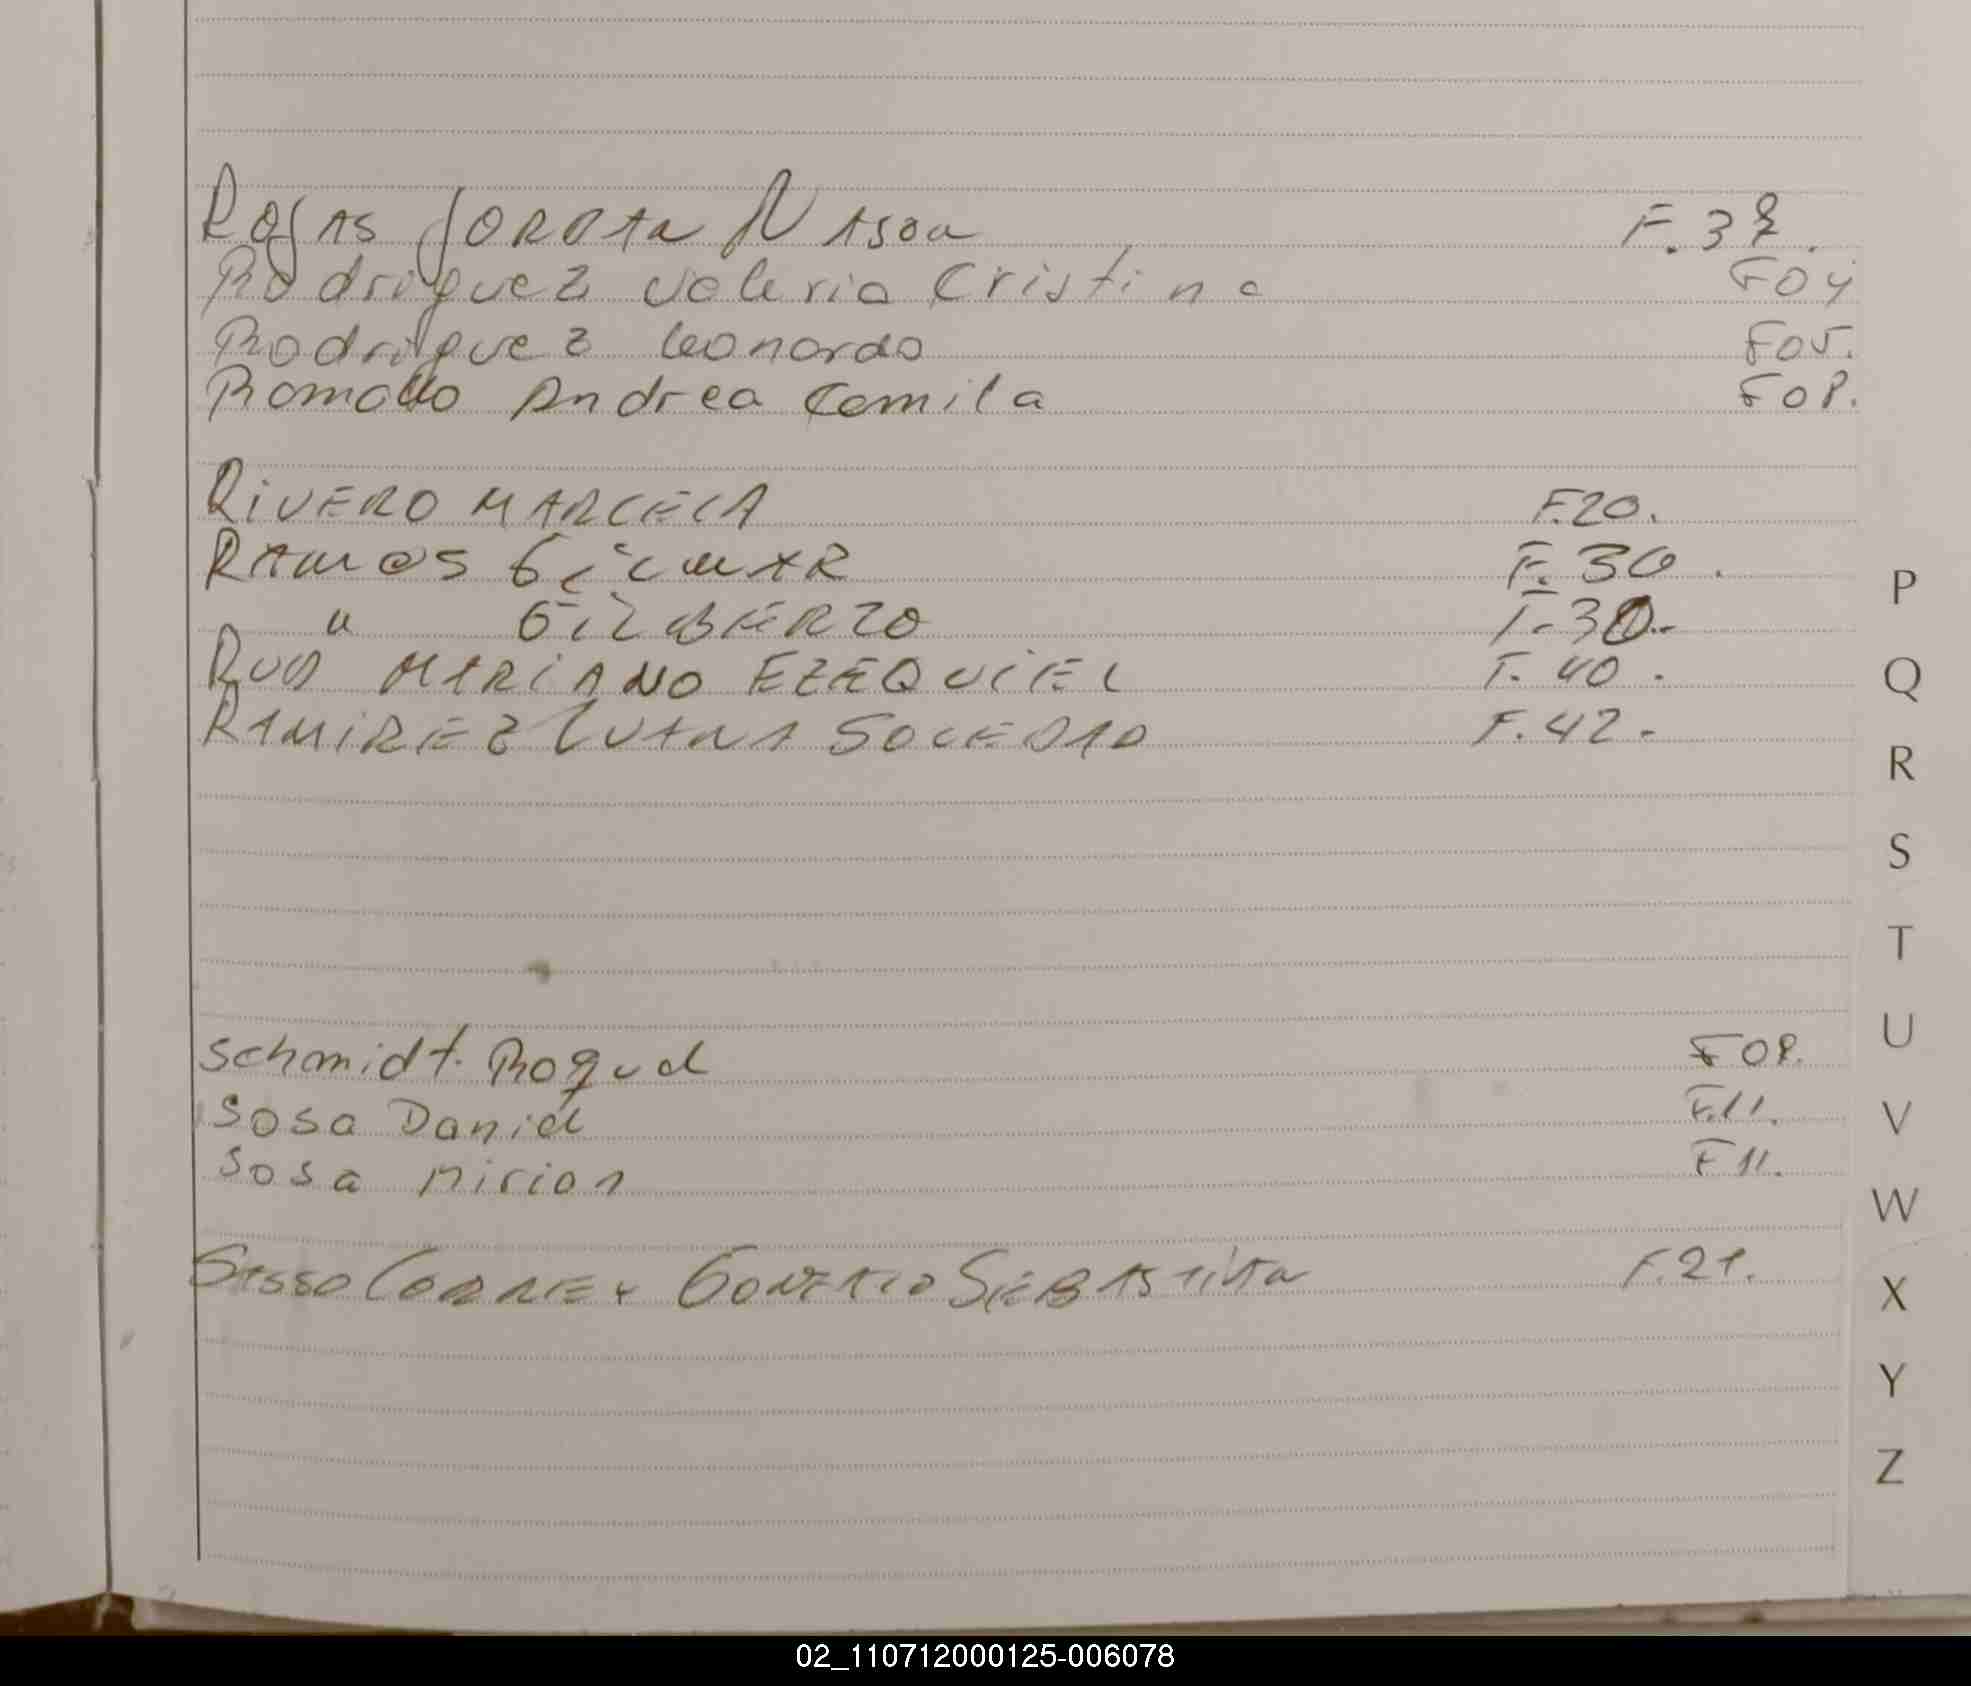 Rojas Jordan Nason F. 38.
Rodriguez Valeria Cristina F04
Rodriguez Leonardo F05.
Romallo Andrea Camila F08.
RIVERO MARCELA F.20.
RAMOS GILMAR F. 30.
" GILBERTO F-30.-
RUA MARIANO EZEQUIEL F. 40.
RAMIREZ LUANA SOLEDAD F. 42.-
Schmidt Roquel F08.
Sosa Daniel F.11.
Sosa Mirian F11.
SASSO GONZALO SEBASTIAN F.21.
P
Q
R
S
T
U
V
W
X
Y
Z
02_110712000125-006078